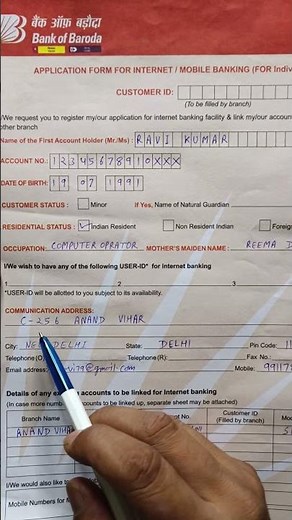 बैंक ऑफ़ बड़ौदा
Bank of Baroda
APPLICATION FORM FOR INTERNET / MOBILE BANKING (FOR Indiv
CUSTOMER ID:
(To be filled by branch)
I/We request you to register my/our application for internet banking facility & link my/our account
other branch
Name of the First Account Holder (Mr./Ms): RAVI KUMAR
ACCOUNT NO.: 12345678910XXX
DATE OF BIRTH: 19 07 1991
CUSTOMER STATUS : Minor If Yes, Name of Natural Guardian
RESIDENTIAL STATUS : Indian Resident Non Resident Indian Foreig
OCCUPATION: COMPUTER OPRATOR MOTHER'S MAIDEN NAME : REEMA D
I/We wish to have any of the following USER-ID* for Internet banking
1 2 3
*USER-ID will be allotted to you subject to its availability.
COMMUNICATION ADDRESS:
C-256 ANAND VIHAR
City: NEW DELHI State: DELHI Pin Code: 11
Telephone(O) Telephone(R): Fax No.:
Email address: Mobile: 9911
Details of any accounts to be linked for Internet banking
(In case more num accounts to be linked, separate sheet may be attached)
Branch Name Customer ID (Filled by branch) Mo
ANAND VIHA
I/We would also like to
Mobile Numbers for M